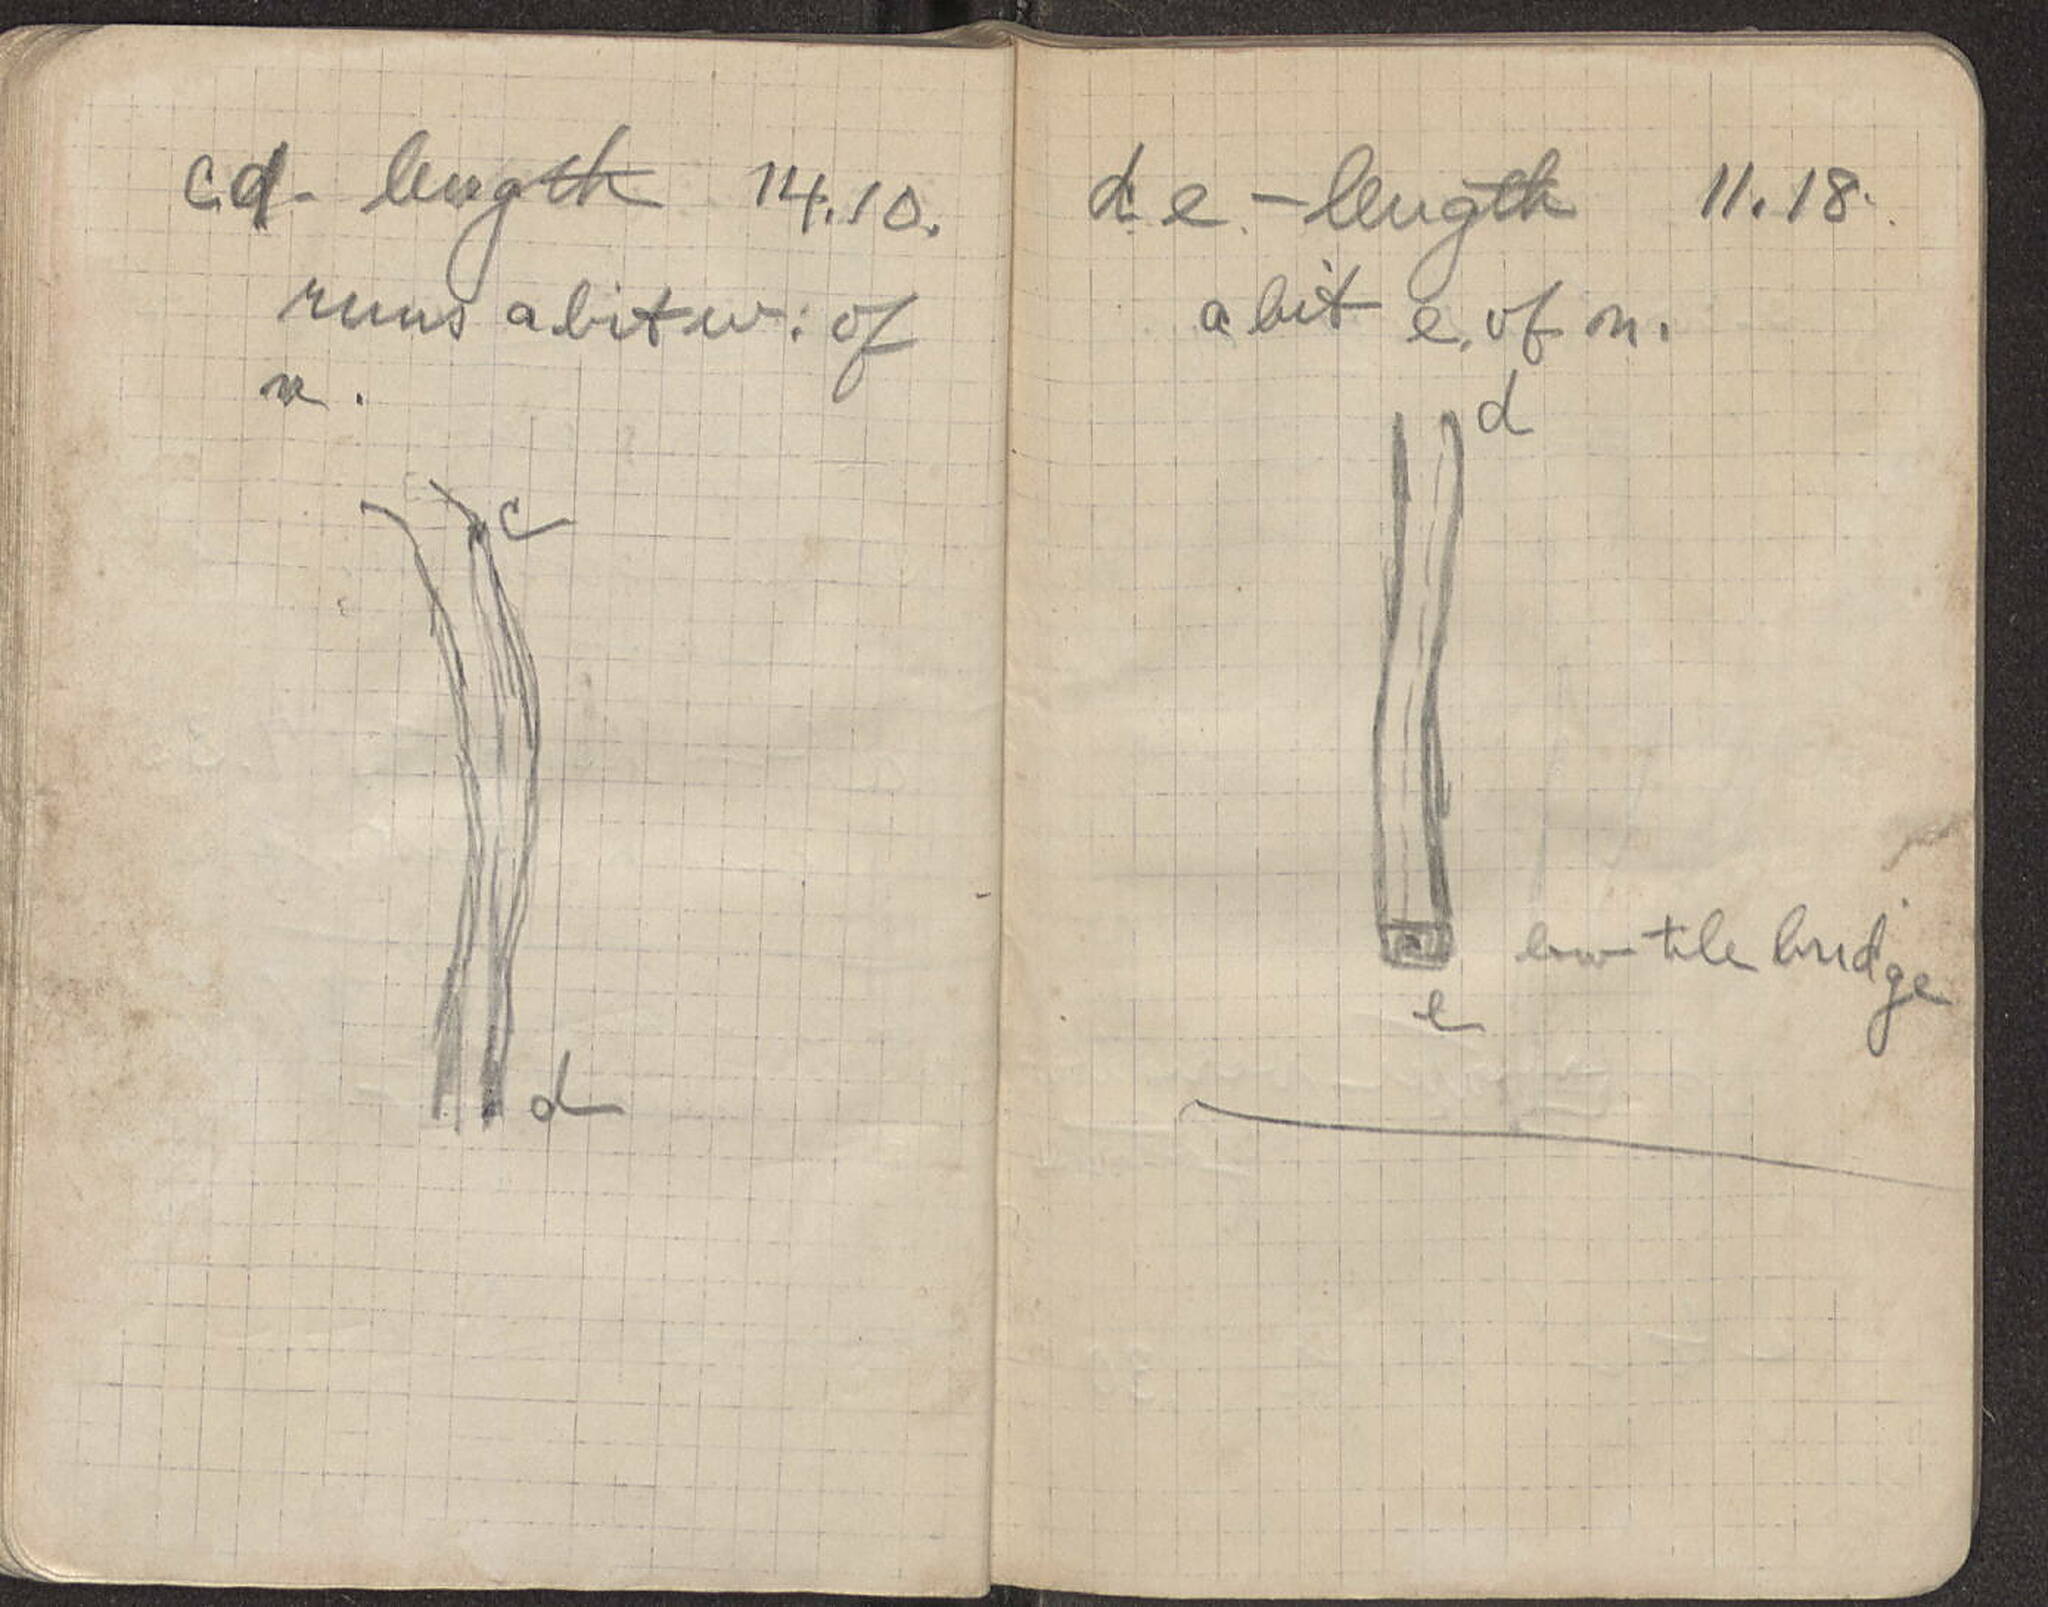 cd- length 14.10.
runs a bit w. of
n.
c
d
d.e. - length 11.18.
a bit e. of n.
d
low tile bridge
e